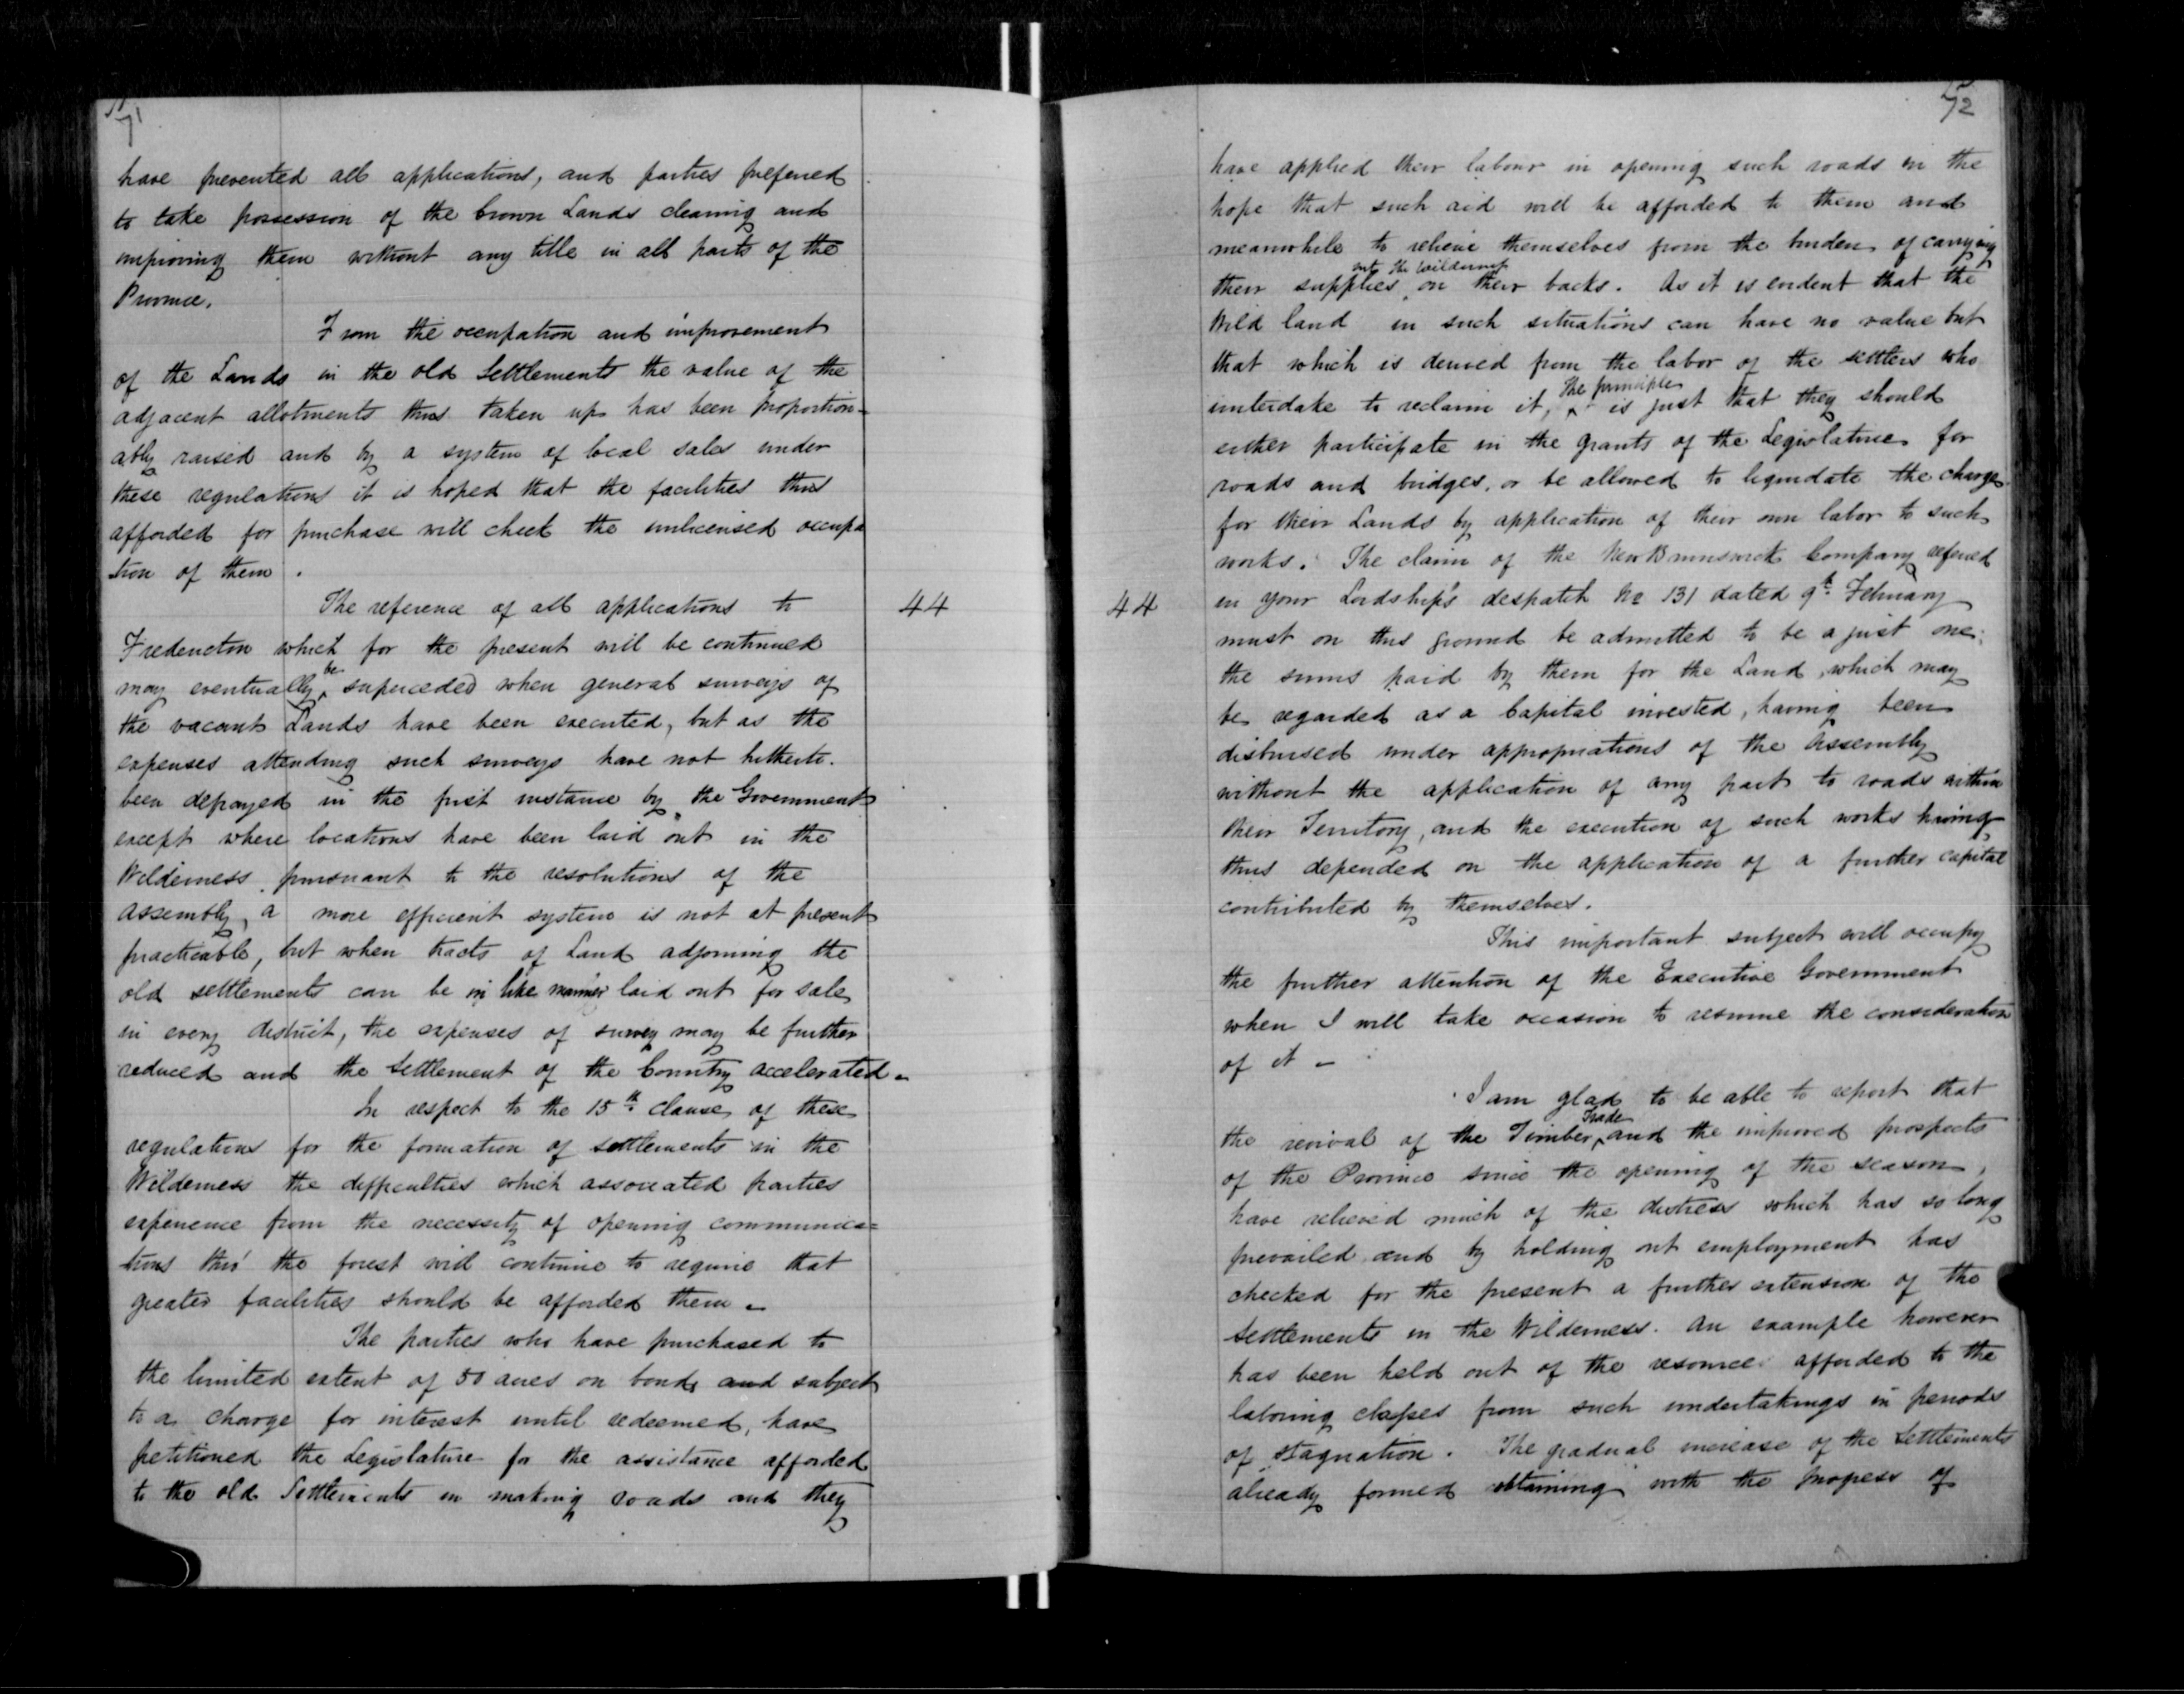 71
have prevented all applications, and parties prefered
to take possession of the Crown Lands clearing and
improving them without any title in all parts of the
Province.
From the occupation and improvement
of the Lands in the old Settlements the value of the
adjacent allotments thus taken up has been proportion-
ably raised and by a system of local sales under
these regulations it is hoped that the facilities thus
afforded for purchase will check the unlicensed occupa
tion of them.
The reference of all applications to
44
Fredericton which for the present will be continued
may eventually be superceded when general surveys of
the vacant Lands have been executed, but as the
expenses attending such surveys have not hitherto
been defrayed in the first instance by the Government
except where locations have been laid out in the
Wilderness pursuant to the resolutions of the
Assembly, a more efficient system is not at present
practicable, but when tracts of Land adjoining the
old settlements can be in like manner laid out for sale
in every district, the expenses of survey may be further
reduced and the Settlement of the Country accelerated.
In respect to the 15th clause of these
regulations for the formation of settlements in the
Wilderness the difficulties which associated parties
experience from the necessity of opening communica=
tions thro' the forest will continue to require that
greater facilities should be afforded them.
The parties who have purchased to
the limited extent of 50 acres on bond, and subject
to a charge for interest until redeemed, have
petitioned the Legislature for the assistance afforded
to the old Settlements in making roads and they
72
have applied their labour in opening such roads in the
hope that such aid will be afforded to them and
meanwhile to relieve themselves from the burden of carrying
their supplies into the Wilderness on their backs. As it is evident that the
Wild land in such situations can have no value but
that which is derived from the labor of the settlers who
undertake to reclaim it, the principle is just that they should
either participate in the grants of the Legislature for
roads and bridges, or be allowed to liquidate the charge
for their Lands by application of their own labor to such
works. The claim of the New Brunswick Company refered
44
in your Lordship's despatch No 131 dated 9th February
must on this ground be admitted to be a just one;
the sums paid by them for the Land, which may
be regarded as a Capital invested, having been
disbursed under appropriations of the Assembly
without the application of any part to roads within
their Territory, and the execution of such works having
thus depended on the application of a further capital
contributed by themselves.
This important subject will occupy
the further attention of the Executive Government
when I will take occasion to resume the consideration
of it -
I am glad to be able to report that
the revival of the Timber Trade and the improved prospects
of the Province since the opening of the season,
have relieved much of the distress which has so long
prevailed and by holding out employment has
checked for the present a further extension of the
Settlements in the Wilderness. An example however
has been held out of the resource afforded to the
laboring classes from such undertakings in periods
of stagnation. The gradual increase of the Settlements
already formed obtaining with the progress of